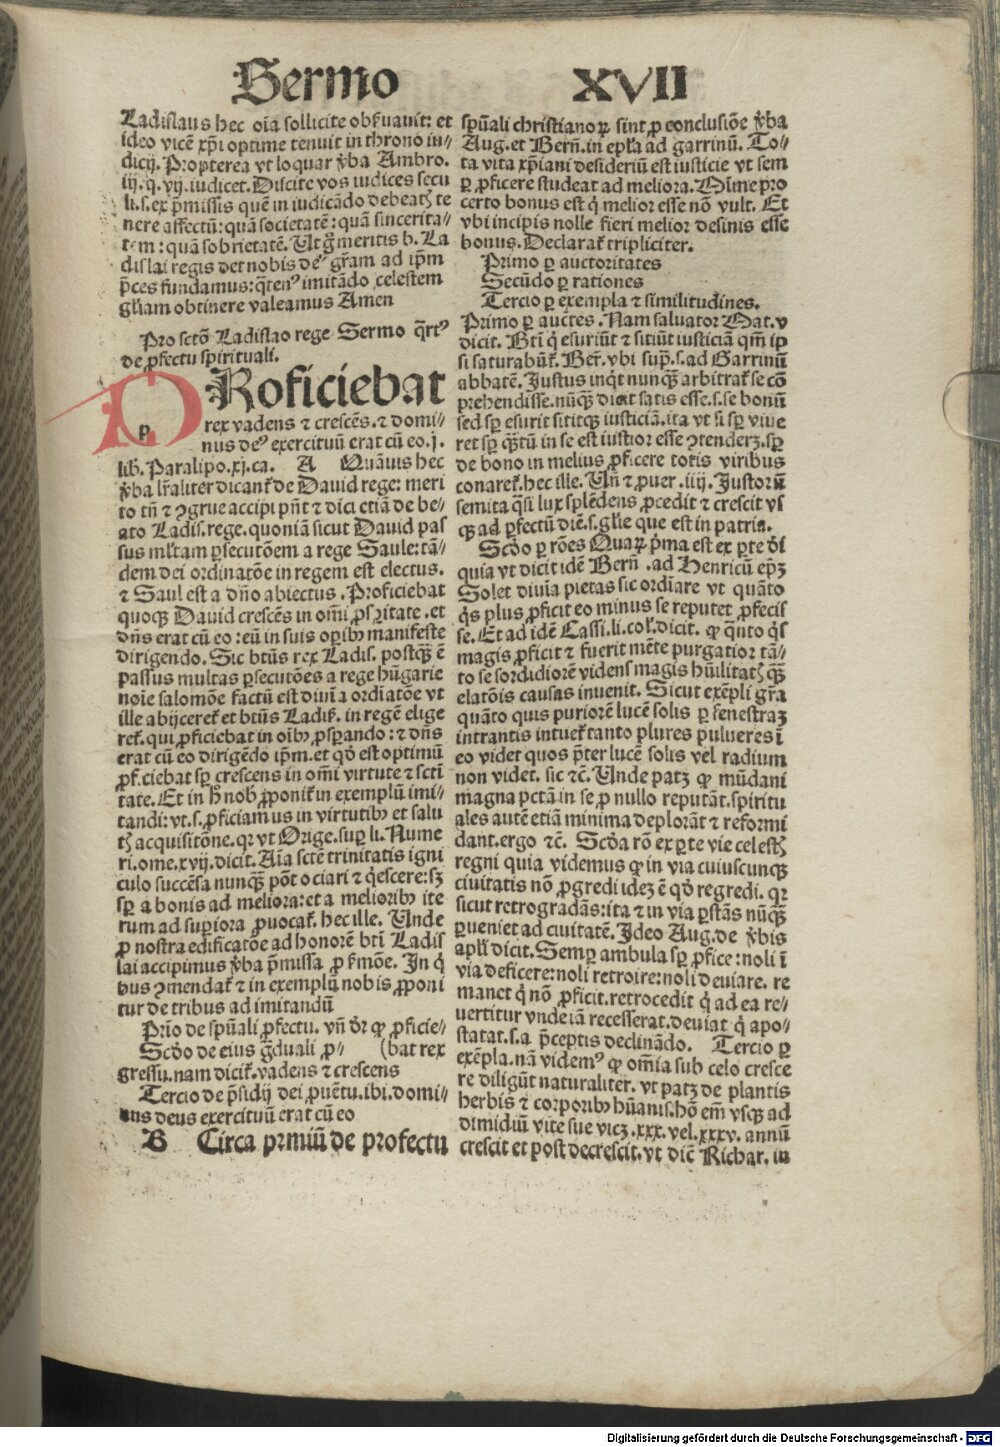 Sermo XVII
Ladislaus hec oı̄a sollicite obẜuauit: et
ideo vicē xp̄i optime tenuit in throno in⸗
dicij. Propterea vt loquar v̾ba Ambro.
iij. q. vij. iudicet. Discite vos iudices secu
li. s. ex p̄missis quē in iudicādo debeatꝭ te
nere affectū: quā societatē: quā sincerita⸗
tem: quā sobrietatē. Ut gͦ meritis b. La
dislai regis det nobis deꝰ gr̄am ad ip̄m
p̄ces fundamus: q̄tenꝰ imitādo celestem
gl̄iam obtinere valeamus Amen
Pro sctō Ladislao rege Sermo q̄rtꝰ
de ꝓfectu spirituali.
PRoficiebat
rex vadens ⁊ crescēs. ⁊ domi⸗
nus deꝰ exercituū erat cū eo. j.
lib̄. Paralipo. xj. ca. A Quāuis hec
v̾ba lr̄aliter dicant᷑ de Dauid rege: meri
to tn̄ ⁊ ꝯgrue accipi pn̄t ⁊ dici etiā de be⸗
ato Ladis. rege. quoniā sicut Dauid pas
sus ml̄tam ꝑsecutōem a rege Saule: tā⸗
dem dei ordinatōe in regem est electus.
⁊ Saul est a dn̄o abiectus. Proficiebat
quoqꝫ Dauid crescēs in om̄i ꝓsꝑitate. et
dn̄s erat cū eo: eū in suis oꝑibꝰ manifeste
dirigendo. Sic btūs rex Ladis. postqꝫ̄ ē
passus multas ꝑsecutōes a rege hūgarie
noīe salomōe factū est diuīa ordīatōe vt
ille abijceret᷑ et btūs Ladiſ. in regē elige
ret᷑. qui ꝓficiebat in oībꝰ ꝓsꝑando: ⁊ dn̄s
erat cū eo dirigēdo ip̄m. et qđ est optimū
ꝓficiebat sꝑ crescens in om̄i virtute ⁊ scti
tate. Et in hͦ nobꝭ ꝓponit᷑ in exemplū imi
tandi: vt. s. ꝓficiamus in virtutibꝰ et salu
tꝭ acquisitōne. qꝛ vt Orige. suꝑ li. Nume
ri. ome. xvij. dicit. Aīa sctē trinitatis igni
culo succēsa nunqꝫ̄ pōt ociari ⁊ q̇escere: sꝫ
sꝑ a bonis ad meliora: et a melioribꝰ ite
rum ad suꝑiora ꝓuocat᷑. hec ille. Unde
ꝓ nostra edificatōe ad honorē bti Ladis
lai accipimus v̾ba p̄missa ꝓ ẜmōe. In q̇
bus ꝯmendat᷑ ⁊ in exemplū nobis ꝓponi
tur de tribus ad imitandū
Prīo de spūali ꝓfectu. vn̄ dr̄ ꝙ ꝓficie⸗
Scd̄o de eius g̈duali ꝓ⸗ (bat rex
gressu. nam dicit᷑. vadens ⁊ crescens
Tercio de p̄sidij dei ꝓuētu. ibi. domi⸗
nus deus exercituū erat cū eo
B Circa primū de profectu
spūali christianoꝝ sint ꝓ conclusiōe v̾ba
Aug. et Bern̄. in epl̄a ad garrinū. To⸗
ta vita xp̄iani desideriū est iusticie vt sem
ꝑ ꝓficere studeat ad meliora. Mīme pro
certo bonus est q̇ melior esse nō vult. Et
vbi incipis nolle fieri melior desinis esse
bonus. Declarat᷑ tripliciter.
Primo ꝑ auctoritates
Secūdo ꝑ rationes
Tercio ꝑ exempla ⁊ similitudines.
Primo ꝑ auctēs. Nam saluator Mat. v
dicit. Bti q̇ esuriūt ⁊ sitiūt iusticiā qm̄ ip
si saturabūt᷑. Ber̄. vbi sup̄. s. ad Garrinū
abbatē. Justus inq̇t nunqꝫ̄ arbitrat᷑ se cō
prehendisse. nūqꝫ̄ dicit satis esse. s. se bonū
sed sꝑ esurit sititqꝫ iusticiā. ita vt si sꝑ viue
ret sꝑ qꝫ̄tū in se est iustior esse ꝯtenderꝫ. sꝑ
de bono in melius ꝓficere totis viribus
conaret᷑. hec ille. Un̄ ⁊ ꝓuer. iiij. Justorū
semita q̄si lux splēdens ꝓcedit ⁊ crescit vs
qꝫ ad ꝑfectū diē. s. gl̄ie que est in patria.
Scd̄o ꝑ rōes Quaꝝ p̄ma est ex ꝑte dei
quia vt dicit idē Bern̄. ad Henricū ep̄ꝫ
Solet diuīa pietas sic ordīare vt quāto
q̇s plus ꝓficit eo minus se reputet ꝓfecis
se. Et ad idē Cassi. li. col̄. dicit. ꝙ q̄nto q̇s
magis ꝓficit ⁊ fuerit mēte purgatior tā⸗
to se sordidiorē videns magis hūilitatꝭ qꝫ̄
elatōis causas inuenit. Sicut exēpli gr̄a
quāto quis puriorē lucē solis ꝑ fenestraꝫ
intrantis intuet᷑ tanto plures pulueres ī
eo videt quos p̄ter lucē solis vel radium
non videt. sic ⁊c̄. Unde patꝫ ꝙ mūdani
magna pctā in se ꝓ nullo reputāt. spiritu
ales autē etiā minima deplorāt ⁊ reformi
dant. ergo ⁊c̄. Scd̄a rō ex ꝑte vie celestꝭ
regni quia videmus ꝙ in via cuiuscunqꝫ
ciuitatis nō ꝓgredi ideꝫ ē qđ regredi. qꝛ
sicut retrogradās: ita ⁊ in via ꝑstās nūqꝫ̄
ꝑueniet ad ciuitatē. Ideo Aug. de v̾bis
apl̄i dicit. Semꝑ ambula sꝑ ꝓfice: noli ī
via deficere: noli retroire: noli deuiare. re
manet q̇ nō ꝓficit. retrocedit q̇ ad ea re⸗
uertitur vnde iā recesserat. deuiat q̇ apo⸗
statat. s. a p̄ceptis declinādo. Tercio ꝑ
exēpla. nā videmꝰ ꝙ om̄ia sub celo cresce
re diligūt naturaliter. vt patꝫ de plantis
herbis ⁊ corporibꝰ hūanis. hō em̄ vsqꝫ ad
dimidiū vite sue vicꝫ. xxx. vel. xxxv. annū
crescit et post decrescit. vt dic̄ Richar. in
Digitalisierung gefördert durch die Deutsche Forschungsgemeinschaft - DFG